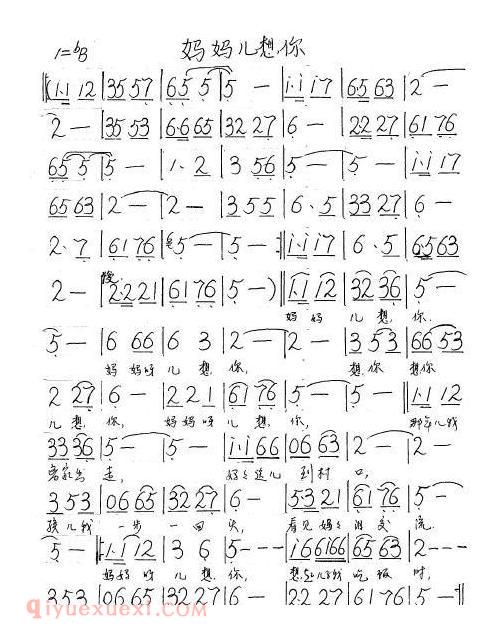 妈妈儿想你
1=bB
(1·1 12 | 35 57 | 65 5 | 5 — | i·i i7 | 65 63 | 2 —
2 — | 35 53 | 6·6 65 | 32 27 | 6 — | 2·2 27 | 61 76
65 5 | 5 — | 1· 2 | 3 56 | 5 — | 5 — | i·i i7
65 63 | 2 — | 2 — | 3 5 5 | 6· 5 | 33 27 | 6 —
2· 7 | 61 76 | 5 — | 5 — :| i·i i7 | 6· 5 | 65 63
2 — | 2·2 21 | 61 76 | 5 —) | 1·1 12 | 32 36 | 5 —
妈妈 儿想你
5 — | 6 66 | 6 3 | 2 — | 2 — | 3 53 | 66 53
妈妈呀儿想你, 想你想你
2 27 | 6 — | 2 2 1 | 61 76 | 5 — | 5 — | 1·1 12
儿想你, 妈妈呀儿想你,
33 36 | 5 — | 5 — | i·i 66 | 06 63 | 2 — | 2 —
走, 到村口,
3 53 | 06 65 | 32 27 | 6 — | 53 21 | 61 76 | 5 —
一步一回头, 看见妈
5 — |: 1·1 12 | 3 6 | 5 - - - | i66 i66 | 65 63 | 2 - - -
妈妈呀儿想你, 吃饭时,
3 53 | 06 65 | 32 27 | 6 — | 2·2 27 | 61 76 | 5 — :|
qiyuexuexi.com